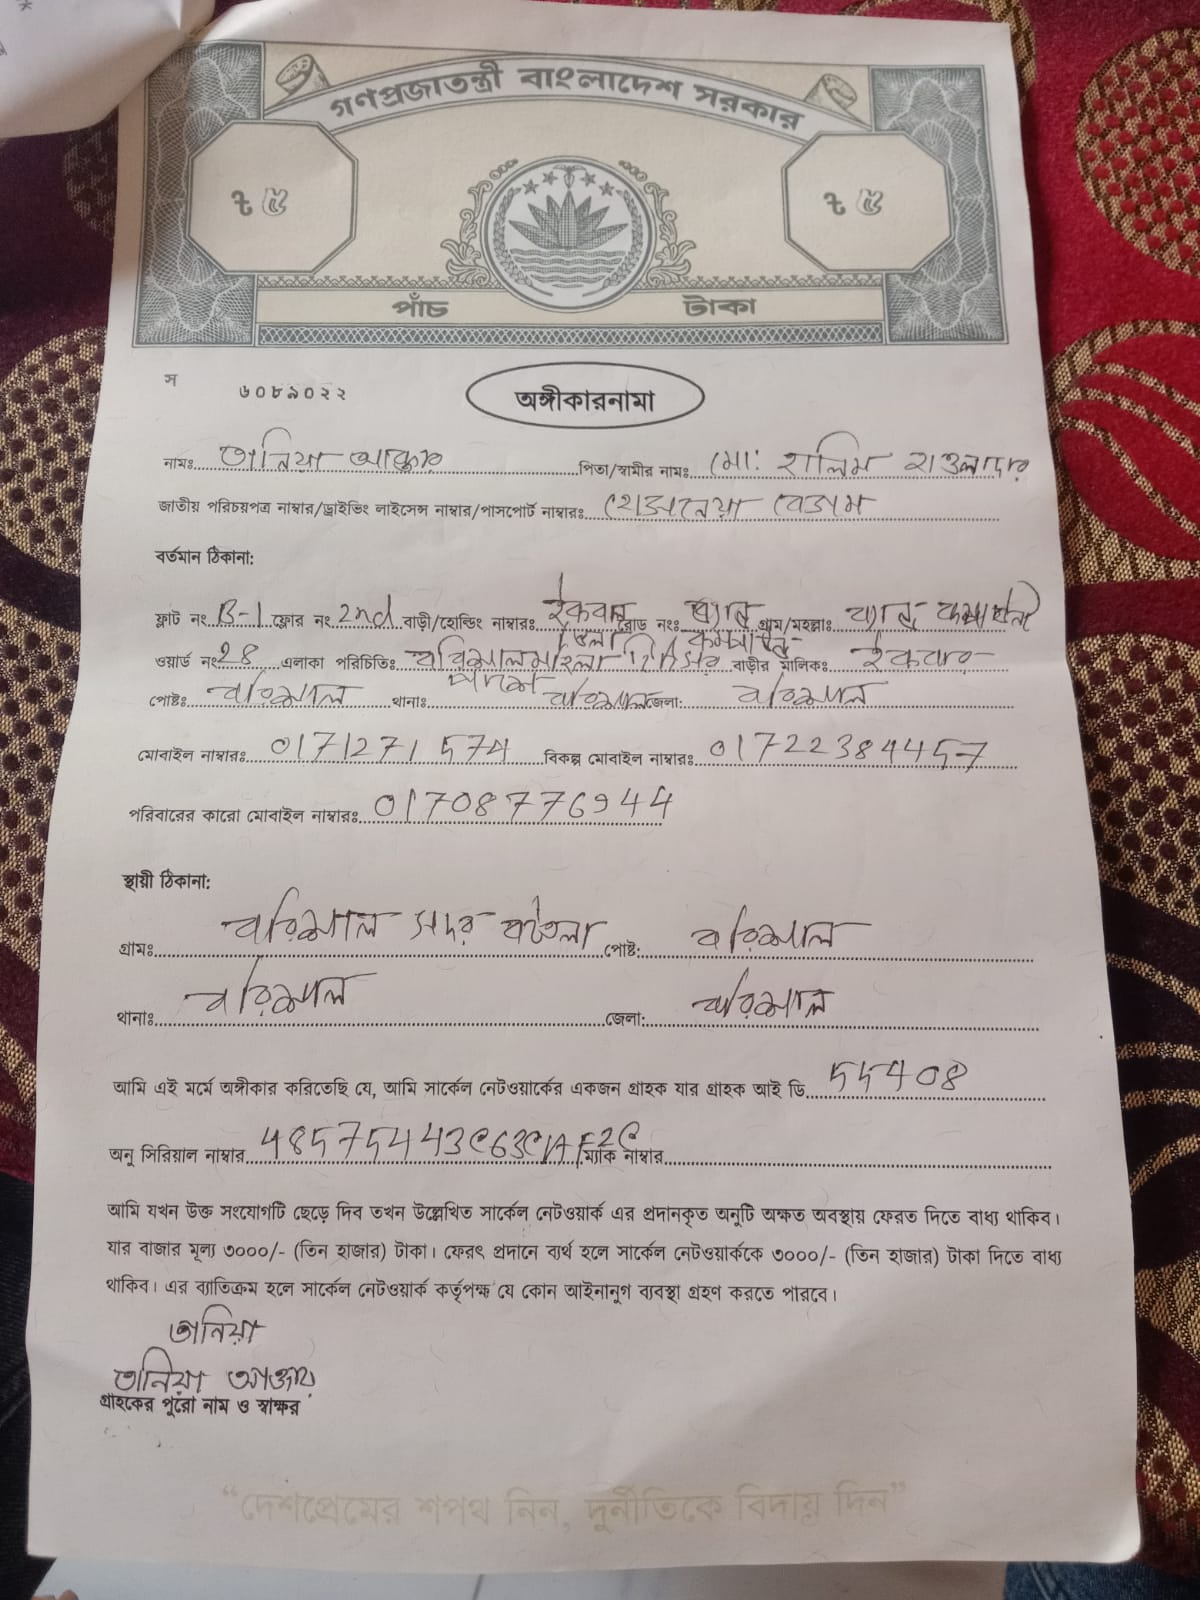 গণপ্রজাতন্ত্রী বাংলাদেশ সরকার
৳ ৫ ৳ ৫
পাঁচ টাকা
স ৬০৮৯০২২
অঙ্গীকারনামা
নামঃ তানিয়া আক্তার পিতা/স্বামীর নামঃ মো: হালিম হাওলাদার
জাতীয় পরিচয়পত্র নাম্বার/ড্রাইভিং লাইসেন্স নাম্বার/পাসপোর্ট নাম্বারঃ বেগম
বর্তমান ঠিকানা:
ফ্লাট নং B-1 ফ্লোর নং 2nd বাড়ী/হোল্ডিং নাম্বারঃ রোড নং গ্রাম/মহল্লাঃ
ওয়ার্ড নং 28 এলাকা পরিচিতিঃ বরিশাল মহিলা বাড়ীর মালিকঃ
পোষ্টঃ বরিশাল থানাঃ বরিশাল জেলা: বরিশাল
মোবাইল নাম্বারঃ 01712715 74 বিকল্প মোবাইল নাম্বারঃ 01722384457
পরিবারের কারো মোবাইল নাম্বারঃ 01708776944
স্থায়ী ঠিকানা:
গ্রামঃ বরিশাল সদর বটতলা পোষ্ট: বরিশাল
থানাঃ বরিশাল জেলা: বরিশাল
আমি এই মর্মে অঙ্গীকার করিতেছি যে, আমি সার্কেল নেটওয়ার্কের একজন গ্রাহক যার গ্রাহক আই ডি 55408
অনু সিরিয়াল নাম্বার ম্যাক নাম্বার
আমি যখন উক্ত সংযোগটি ছেড়ে দিব তখন উল্লেখিত সার্কেল নেটওয়ার্ক এর প্রদানকৃত অনুটি অক্ষত অবস্থায় ফেরত দিতে বাধ্য থাকিব।
যার বাজার মূল্য ৩০০০/- (তিন হাজার) টাকা। ফেরৎ প্রদানে ব্যর্থ হলে সার্কেল নেটওয়ার্ককে ৩০০০/- (তিন হাজার) টাকা দিতে বাধ্য
থাকিব। এর ব্যাতিক্রম হলে সার্কেল নেটওয়ার্ক কর্তৃপক্ষ যে কোন আইনানুগ ব্যবস্থা গ্রহণ করতে পারবে।
তানিয়া
তানিয়া আক্তার
গ্রাহকের পুরো নাম ও স্বাক্ষর
“দেশপ্রেমের শপথ নিন, দুর্নীতিকে বিদায় দিন”